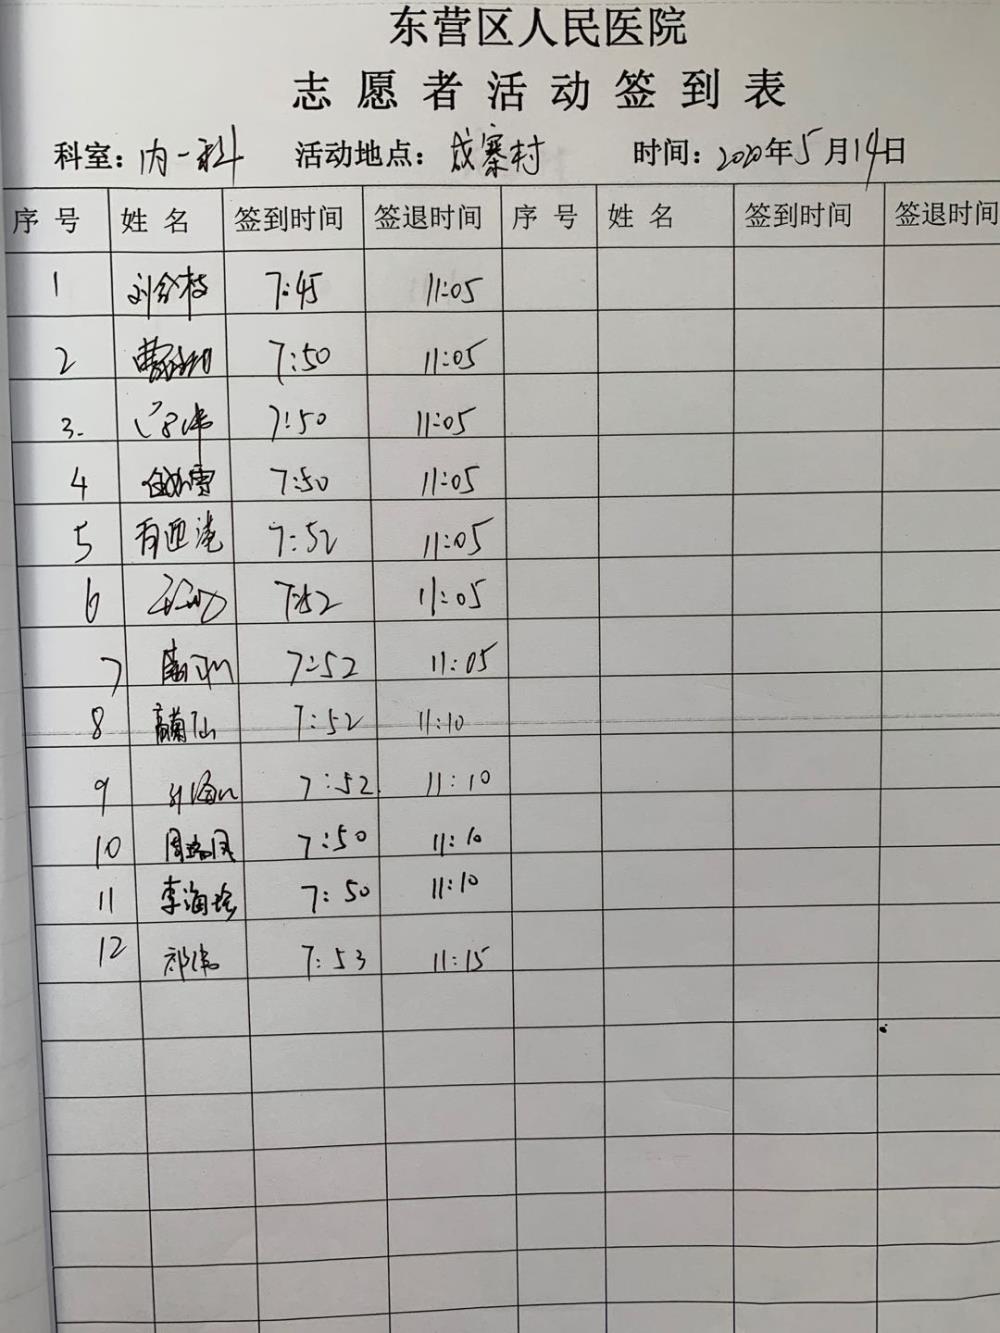 东营区人民医院
志愿者活动签到表
科室：内一科 活动地点：成寨村 时间：2020年5月14日
序号 姓名 签到时间 签退时间 序号 姓名 签到时间 签退时间
1 7:45 11:05
2 7:50 11:05
3. 7:50 11:05
4 7:50 11:05
5 7:52 11:05
6 7:52 11:05
7 7:52 11:05
8 7:52 11:10
9 7:52 11:10
10 7:50 11:10
11 李海珍 7:50 11:10
12 祁伟 7:53 11:15